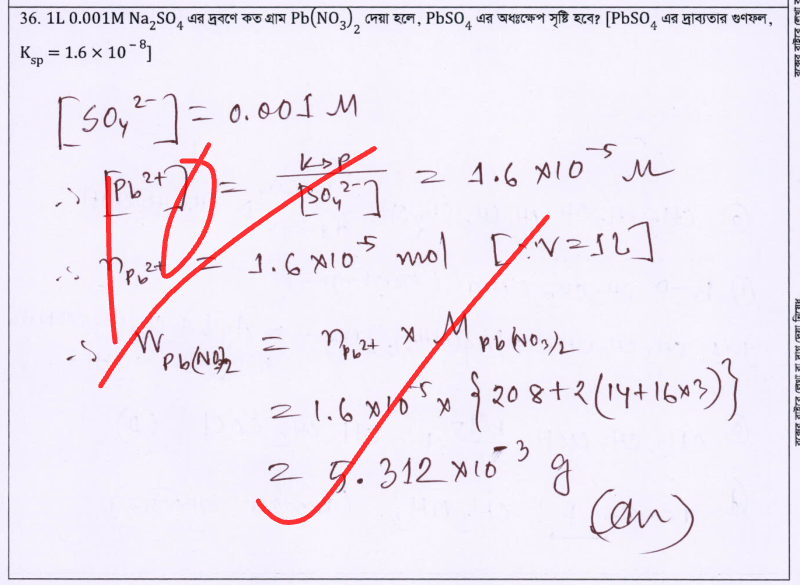 36. 1L 0.001M Na₂SO₄ এর দ্রবণে কত গ্রাম Pb(NO₃)₂ দেয়া হলে, PbSO₄ এর অধঃক্ষেপ সৃষ্টি হবে? [PbSO₄ এর দ্রাব্যতার গুণফল,
K_sp = 1.6 × 10⁻⁸]
[SO₄²⁻] = 0.001 M
∴ [Pb²⁺] = Ksp / [SO₄²⁻] = 1.6 × 10⁻⁵ M
∴ n_Pb²⁺ = 1.6 × 10⁻⁵ mol [∵ V = 1L]
∴ W_Pb(NO₃)₂ = n_Pb²⁺ × M_Pb(NO₃)₂
= 1.6 × 10⁻⁵ × {208 + 2(14 + 16 × 3)}
= 5.312 × 10⁻³ g
(Ans)
10